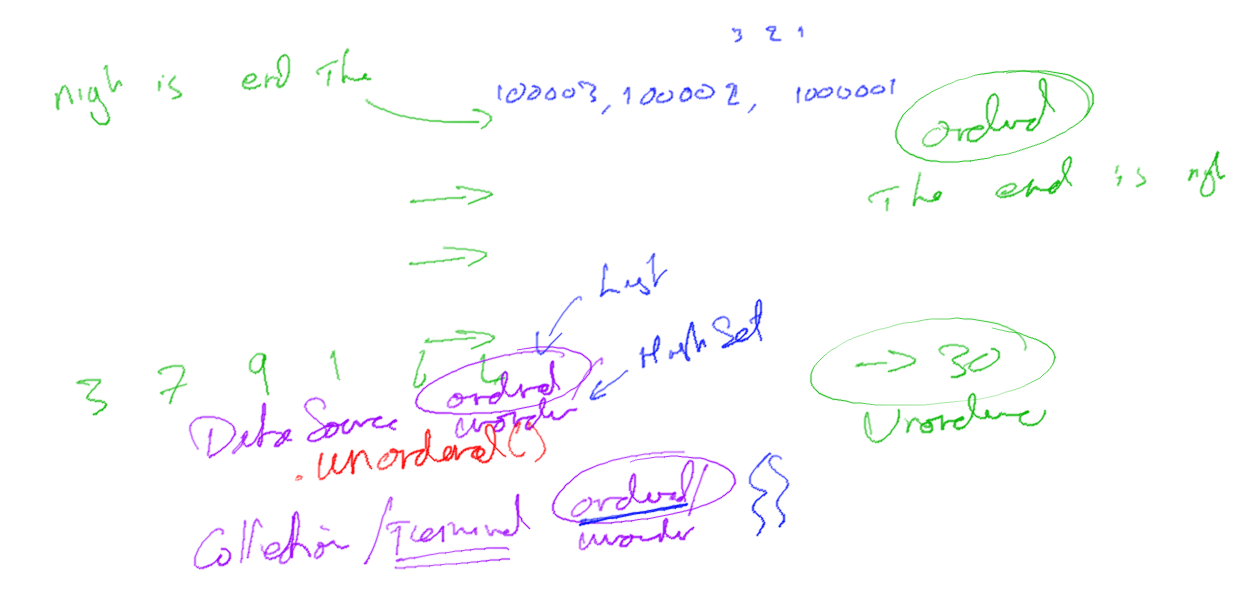 3 2 1
nigh is end The
100003, 100002, 1000001
ordered
The end is nigh
List
HashSet
3 7 9 1 6 4
→ 30
Data Source ordered/
unorder
Unordered
.unordered()
Collection / Terminal ordered/
unorder